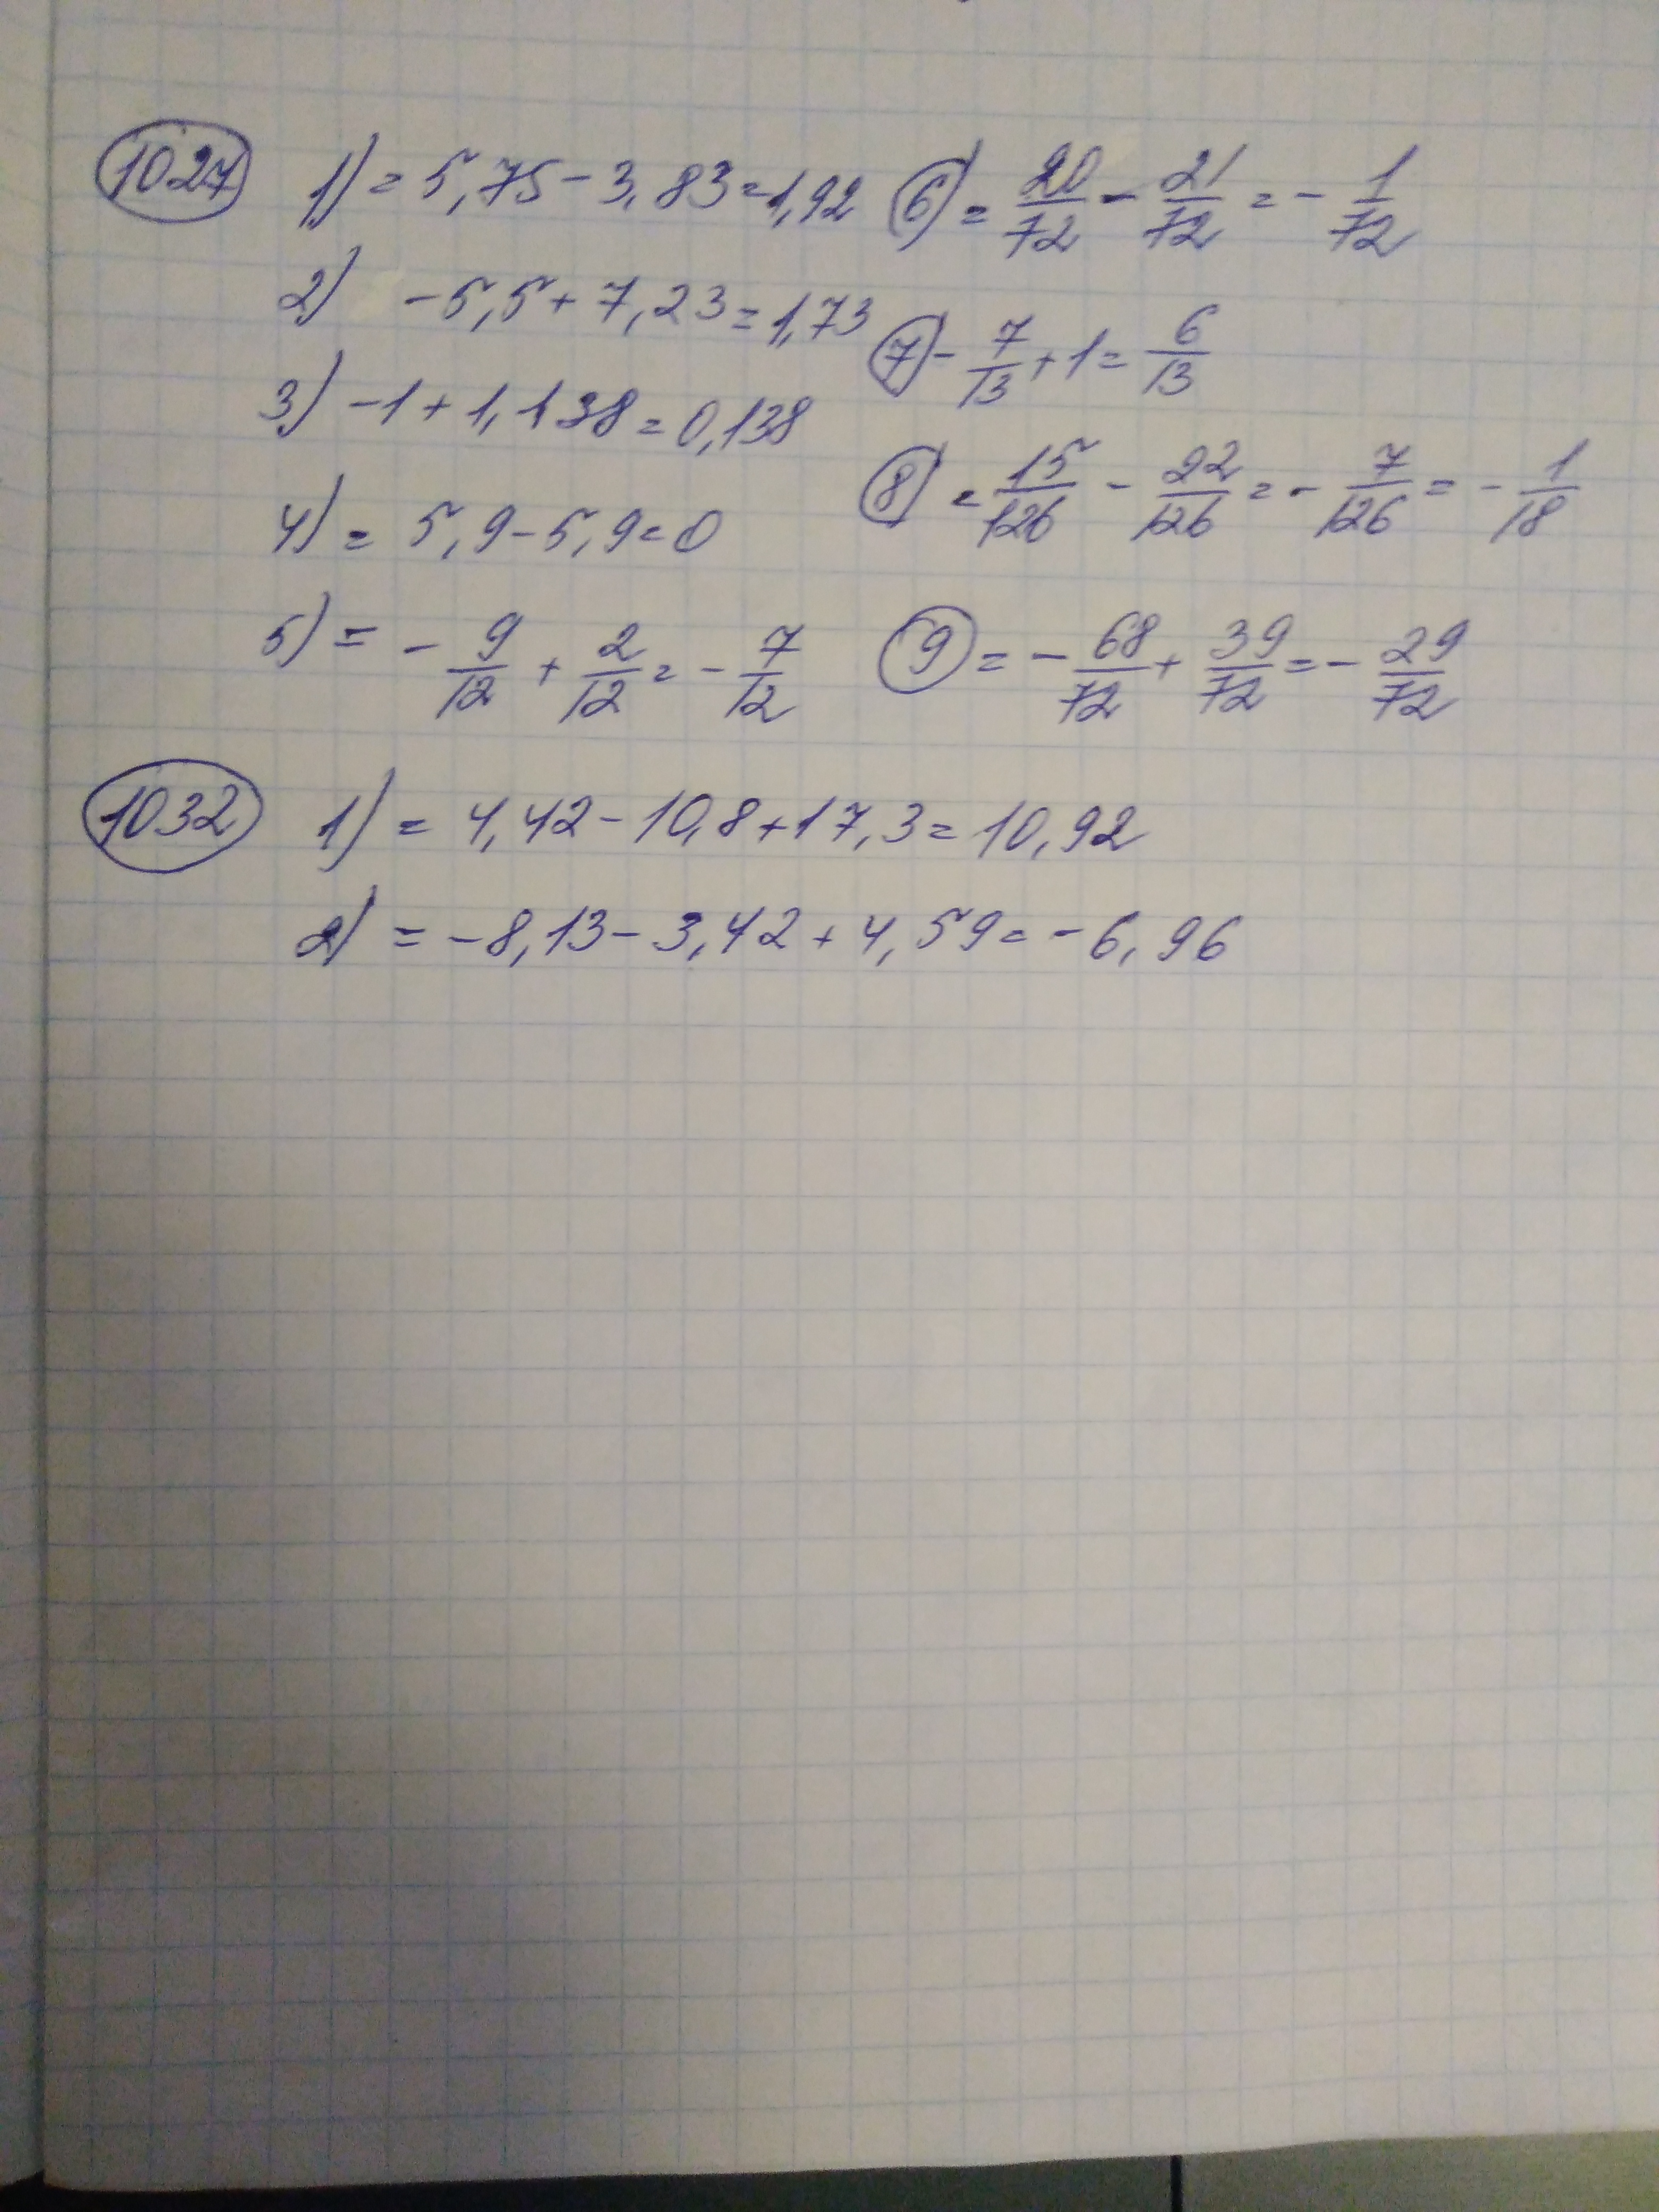 1027 1) = 5,75 - 3,83 = 1,92
2) -5,5 + 7,23 = 1,73
3) -1 + 1,138 = 0,138
4) = 5,9 - 5,9 = 0
5) = - 9/12 + 2/12 = - 7/12
6) = 20/72 - 21/72 = - 1/72
7) - 7/13 + 1 = 6/13
8) = 15/126 - 22/126 = - 7/126 = - 1/18
9 = - 68/72 + 39/72 = - 29/72
1032 1) = 4,42 - 10,8 + 17,3 = 10,92
2) = -8,13 - 3,42 + 4,59 = -6,96